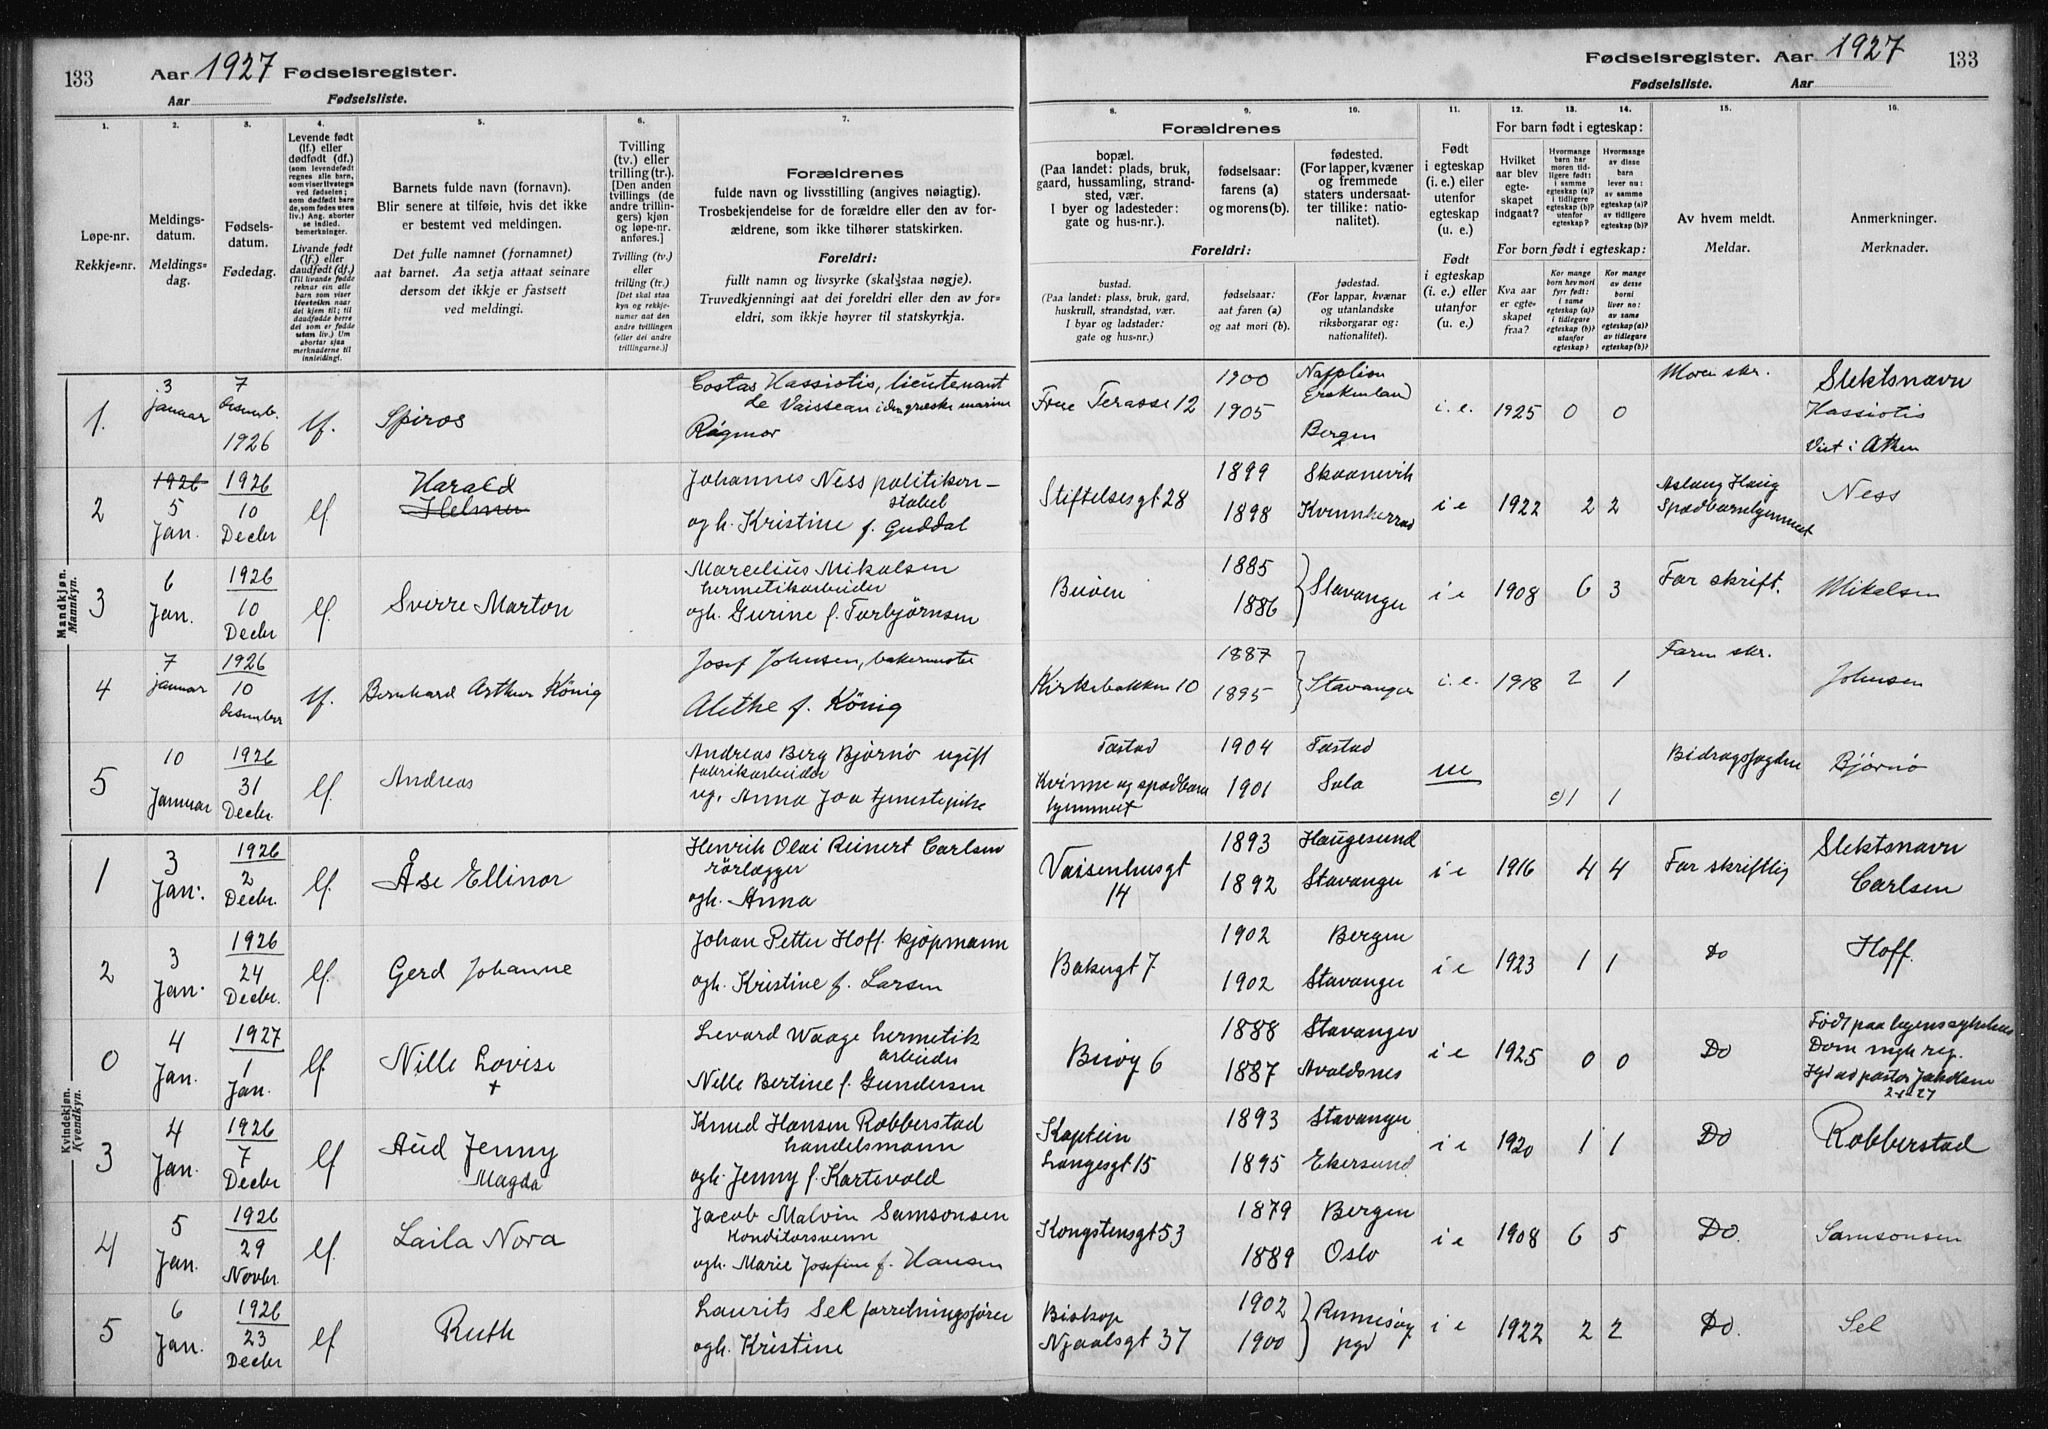 133 Aar 1927 Fødselsregister.
Aar Fødselsliste.
1. 2. 3. 4. 5. 6. 7.
Løpe-nr.
Rekkje=nr.
Meldings-
datum.
Meldings=
dag.
Fødsels-
datum.
Fødedag.
Levende født
(lf.) eller
dødfødt (df.)
Livande født
(lf.) eller
daudfødt (df.)
Barnets fulde navn (fornavn).
Blir senere at tilføie, hvis det ikke
er bestemt ved meldingen.
Det fulle namnet (fornamnet)
aat barnet. Aa setja attaat seinare
dersom det ikkje er fastsett
ved meldingi.
Tvilling
(tv.) eller
trilling (tr.).
[Den anden
tvillings (de
andre trillin-
gers) kjøn
og løpe-nr.
anføres.]
Tvilling (tv.)
eller
trilling (tr.)
[Det skal staa
kyn og rekkje-
numer aat den
andre tvillingen
(eller dei andre
trillingarne.)]
Forældrenes
fulde navn og livsstilling (angives nøiagtig).
Trosbekjendelse for de forældre eller den av for-
ældrene, som ikke tilhører statskirken.
Foreldri:
fullt namn og livsyrke (skal staa nøgje).
Truvedkjenningi aat dei foreldri eller den av for=
eldri, som ikkje høyrer til statskyrkja.
Mandkjøn.
Mannkyn.
1. 3 januar 7 desemb. 1926 lf. Spiros
Costas Hassiotis, lieutenant
de Vaissean i den græske marine
Ragmor
2 1926 5 Jan. 1926 10 Decbr lf Harald
Helmer
Johannes Ness politikon-
stabel
og h. Kristine f. Guddal
3 6 Jan. 1926 10 Decbr lf. Sverre Marton
Marcelius Mikalsen
hermetikarbeider
og h. Gurine f. Torbjørnsen
4 7 januar 1926 10 desember lf. Bernhard Arthur König
Josef Johnsen, bakermester
Alethe f. König
5 10 Januar 1926 31 Decbr. lf. Andreas
Andreas Berg Bjørnø ugift
fabrikarbeider
ug. Anna Joa tjenestepike
Kvindekjøn.
Kvendkyn.
1 3 Jan. 1926 2 Decbr. lf. Åse Ellinor
Henrik Olai Reinert Carlsen
rörlægger
og h. Anna
2 3 Jan. 1926 24 Decbr. lf. Gerd Johanne
Johan Petter Hoff kjøpmann
og h. Kristine f. Larsen
0 4 Jan. 1927 1 Jan. lf Nille Lovise
+
Levard Waage hermetik
arbeider
Nille Bertine f. Gundersen
3 4 Jan. 1926 7 Decbr lf Aud Jenny
Magda
Knud Hansen Robberstad
handelsmann
og h. Jenny f. Kartevold
4 5 Jan. 1926 29 Novbr. lf. Laila Nora
Jacob Malvin Samsonsen
Konditorsvenn
og h. Marie Josefine f. Hansen
5 6 Jan. 1926 23 Decbr lf Ruth
Laurits Sel forretningsfører
og h. Kristine
Fødselsregister. Aar 1927 133
Fødselsliste. Aar
8. 9. 10. 11. 12. 13. 14. 15. 16.
Forældrenes
bopæl.
(Paa landet: plads, bruk,
gaard, hussamling, strand-
sted, vær.
I byer og ladesteder:
gate og hus-nr.).
fødselsaar:
farens (a)
og morens (b).
fødested.
(For lapper, kvæner
og fremmede
staters undersaat-
ter tillike: natio-
nalitet).
Foreldri:
bustad.
(Paa landet: plass, bruk, gard,
huskrull, strandstad, vær.
I byar og ladstader:
gate og hus-nr.)
fødselsaar:
aat faren (a)
og aat mori (b).
fødestad.
(For lappar, kvænar
og utanlandske
riksborgarar og:
nationalitet).
Født
i egteskap
(i. e.) eller
utenfor
egteskap
(u. e.)
Født
i egteskap
(i. e.) eller
utanfor
(u. e.)
For barn født i egteskap:
Hvilket
aar blev
egte-
skapet
indgaat?
For born født i egteskap:
Kva aar
er egte-
skapet
fraa?
Av hvem meldt.
Meldar.
Anmerkninger.
Merknader.
Frue Terasse 12 1900 1905 Bergen i. e. 1925 0 0 Moren skr.
Slektsnavn
Hassiotis
Viet i Athen
Stiftelsesgt 28 1899 1898 Skaanevik Kvinnherrad i e 1922 2 2
Aslaug Haug
Spædbarnhjemmet
Ness
Buöen 1885 1886 Stavanger i e 1908 6 3 Far skrift. Mikalsen
Kirkebakken 10 1887 1895 Stavanger i. e. 1918 2 1 Faren skr. Johnsen
Tastad 1904 Tastad
Kvinne og spedbarn
hjemmet 1901 Sola ue c) 1 1 Bidragsfogden Bjørnø
Vaisenhusgt
14 1893 1892 Haugesund Stavanger i e 1916 4 4 Far skriftlig
Slektsnavn
Carlsen
Bakergt 7 1902 1902 Bergen Stavanger i e 1923 1 1 Do Hoff.
Buøy 6 1888 1887 Stavanger Avaldsnes i e 1925 0 0 Do
Født paa
Kaptein
Langesgt 15 1893 1895 Stavanger Ekersund i e 1920 1 1 Do Robberstad
Kongstensgt 53 1879 1889 Bergen Oslo i e 1908 6 5 Do. Samsonsen
Biskop
Njaalsgt 37 1902 1900 Rennesøy
pgd i e 1922 2 2 Do. Sel